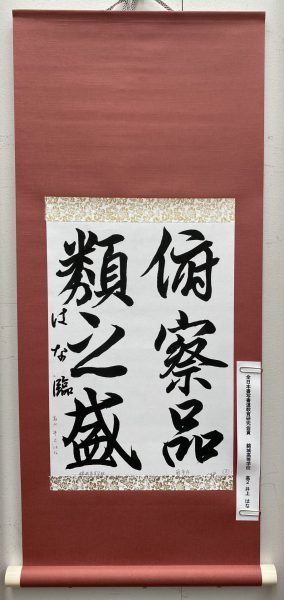 俯察品
類之盛
はな臨
全日本書写書道教育研究会賞　鶴城高等学校　高2　井上　はな